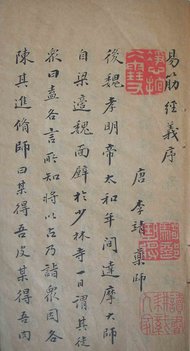 易筋經義序
唐李靖藥師
後魏孝明帝太和年間達摩大師
自梁適魏面壁於少林寺一日謂其徒
衆曰盍各言所知將以占乃詣衆因各
陳其進脩師曰某得吾皮某得吾肉